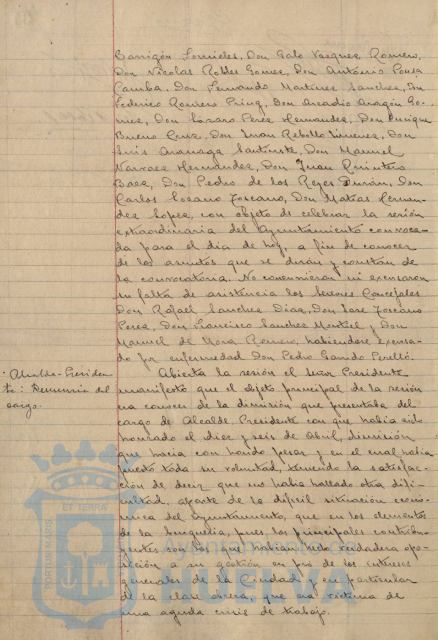 Barrigón Fornieles, Don Galo Vazquez Romero,
Don Nicolas Robles Gomez, Don Antonio Ponsa
Camba, Don Fernando Martinez Sanchez, Don
Federico Romero Don Arcadio Aragón Go-
mez, Don Lazaro Perez Hernandez, Don Enrique
Bueno Cruz, Don Juan Rebollo Jimenez, Don
Luis Don Manuel
Narvaez Hernandez, Don Juan Quintero
Baez, Don Pedro de los Reyes Durán, Don
Carlos Lozano Toscano, Don Matias Hernan-
dez Lopez, con objeto de celebrar la sesión
extraordinaria del Ayuntamiento convoca-
da para el dia de hoy, a fin de conocer
de los asuntos que se dirán y constan de
la convocatoria. No concurrieron ni excusaron
su falta de asistencia los Señores Concejales
Don Rafael Sanchez Diaz, Don Jose Toscano
Perez, Don Francisco Sanchez y Don
Manuel de Mora Romero, habiendose excusa-
do por enfermedad Don Pedro Garrido Perelló.
Alcalde-Presiden-
te: Renuncia del
cargo.
Abierta la sesión el Señor Presidente
manifestó que el objeto principal de la sesión
era conocer de la dimisión que presentaba del
cargo de Alcalde Presidente con que habia sido
honrado el diez y seis de Abril, dimisión
que hacia con hondo pesar y en el cual habia
puesto toda su voluntad, teniendo la satisfac-
ción de decir que no habia hallado otra difi-
cultad, aparte de la dificil situación econo-
mica del Ayuntamiento, que en los elementos
de la burguesia, pues los principales contribu-
yentes son los que habian hecho verdadera opo-
sición a su gestión en pro de los intereses
generales de la Ciudad y en particular
de la clase obrera, que era victima de
una aguda crisis de trabajo.
Ayuntamiento de
HUELVA
ET TERRÆ
PORTUS MARIS